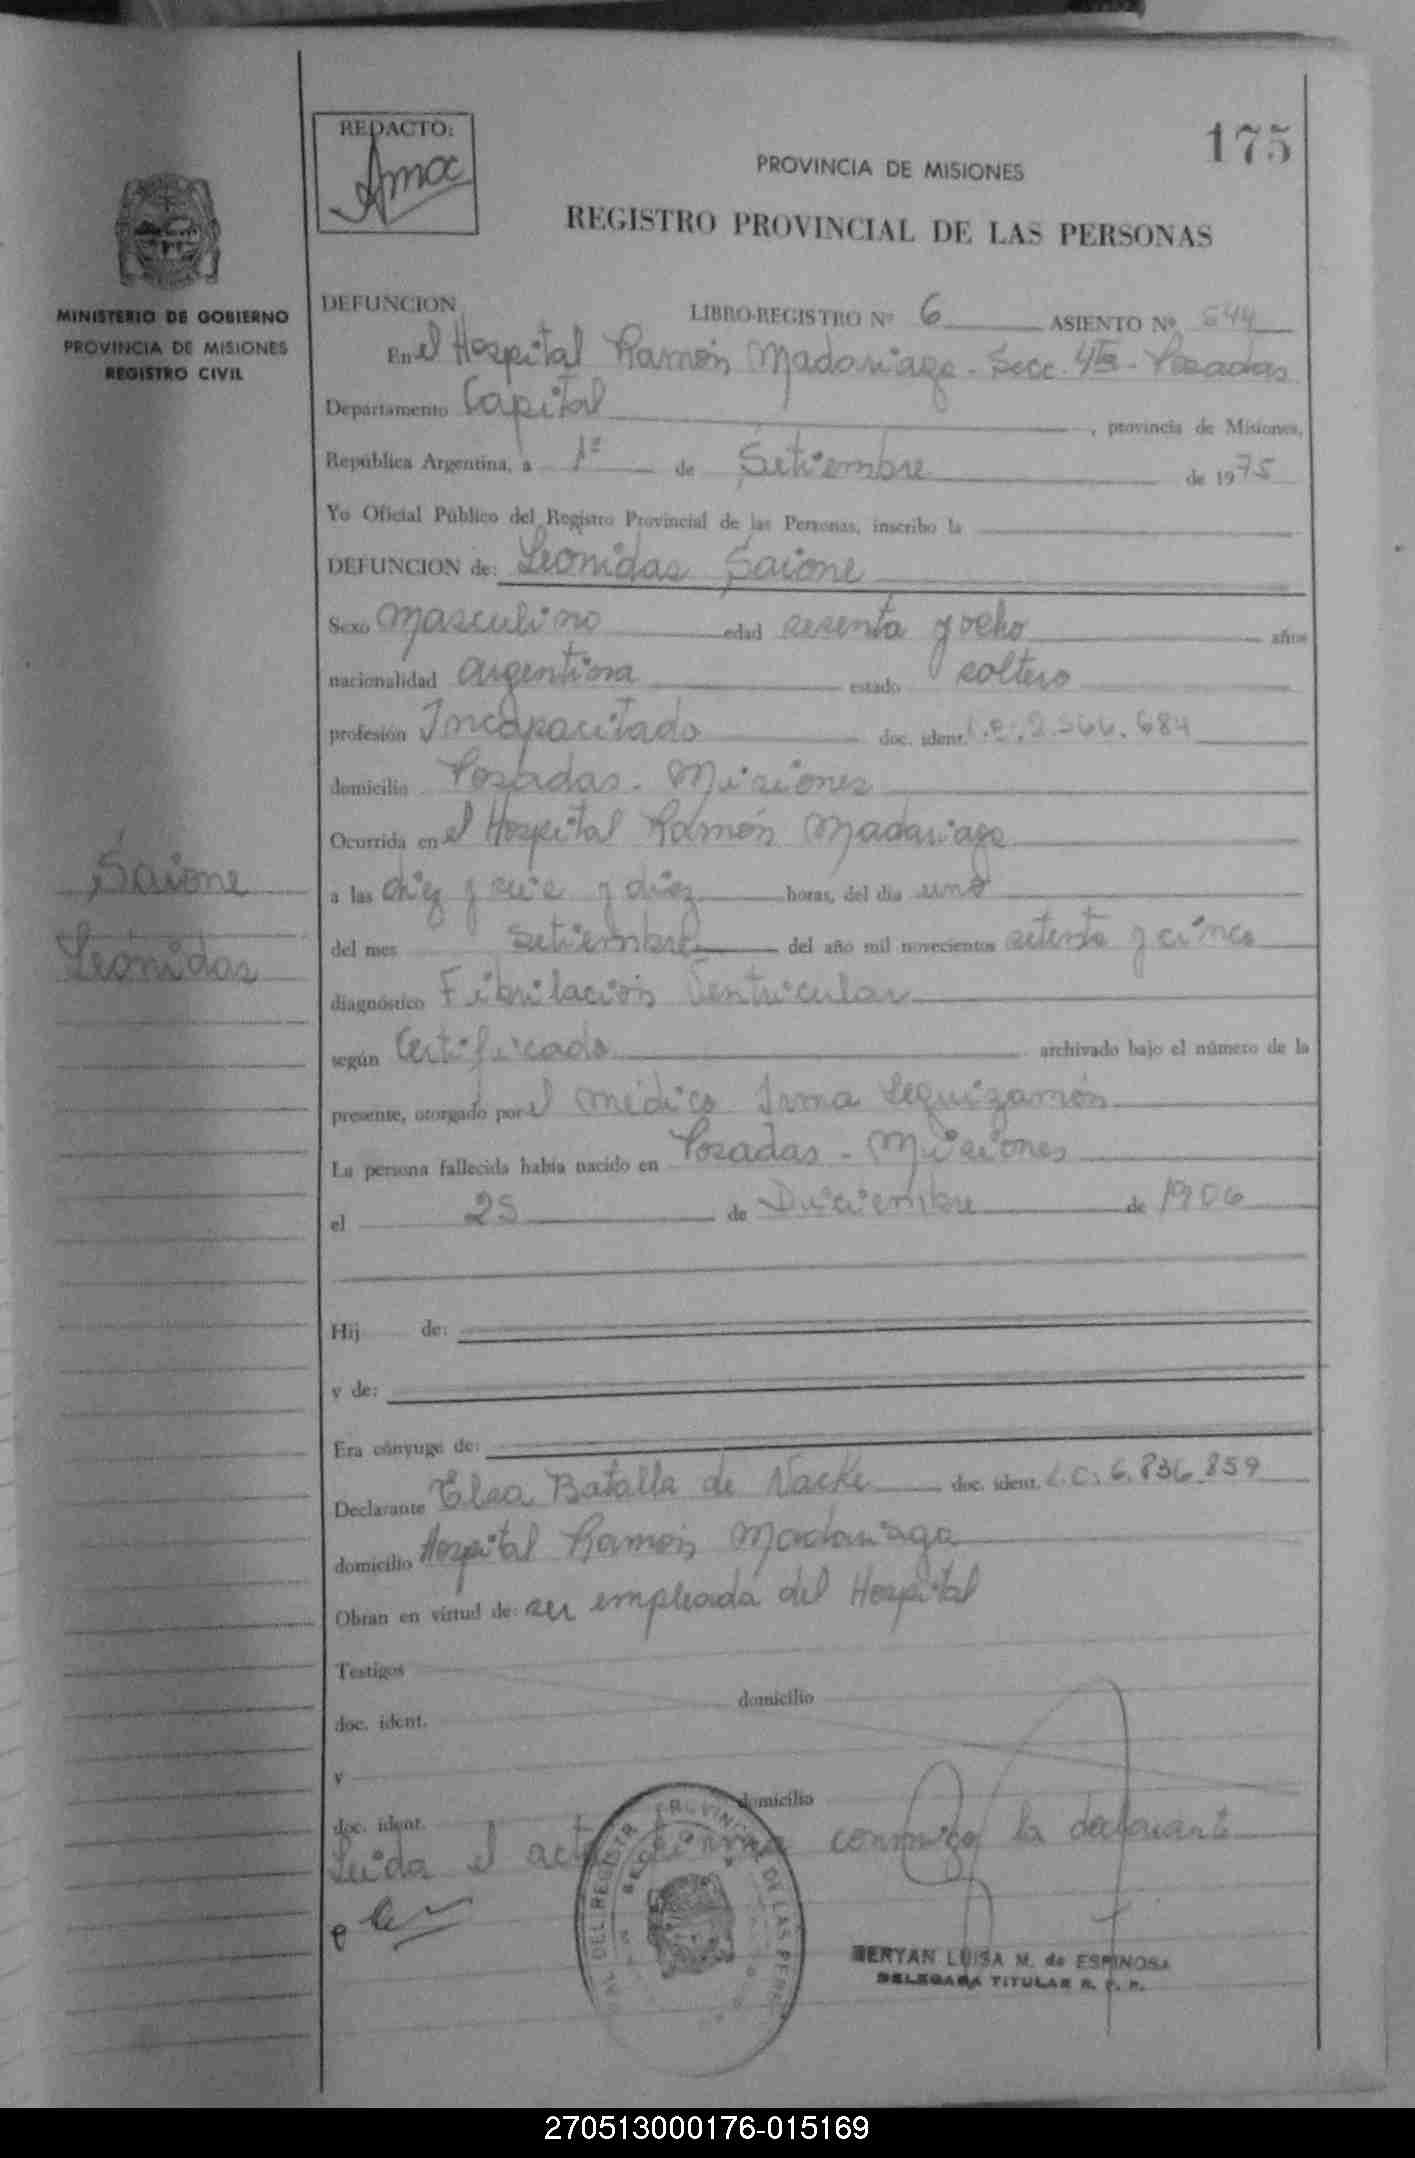 175
REDACTO:
PROVINCIA DE MISIONES
REGISTRO PROVINCIAL DE LAS PERSONAS
MINISTERIO DE GOBIERNO
PROVINCIA DE MISIONES
REGISTRO CIVIL
DEFUNCION
LIBRO-REGISTRO Nº 6 ASIENTO Nº 544
En el Hospital Ramón Madariaga - Secc. 4ta - Posadas
Departamento Capital, provincia de Misiones,
República Argentina, a 1º de Setiembre de 1975
Yo Oficial Público del Registro Provincial de las Personas, inscribo la
DEFUNCION de: Leonidas Saione
Sexo Masculino edad sesenta y ocho años
nacionalidad argentina estado soltero
profesión Incapacitado doc. ident. L.E: 2.566.684
domicilio Posadas - Misiones
Ocurrida en el Hospital Ramón Madariaga
Saione
Leonidas
a las diez y seis y diez horas, del día uno
del mes Setiembre del año mil novecientos setenta y cinco
diagnóstico Fibrilación Ventricular
según Certificado archivado bajo el número de la
presente, otorgado por el médico Irma Leguizamón
La persona fallecida había nacido en Posadas - Misiones
el 25 de Diciembre de 1906
Hij de:
y de:
Era cónyuge de:
Declarante Elsa Batalla de Nacke doc. ident. L.C: 6.836.859
domicilio Hospital Ramón Madariaga
Obran en virtud de: ser empleada del Hospital
Testigos
domicilio
doc. ident.
y
domicilio
doc. ident.
Leida el acta firma conmigo la declarante
BERYAN LUISA M. de ESPINOSA
DELEGADA TITULAR R. P. P.
270513000176-015169